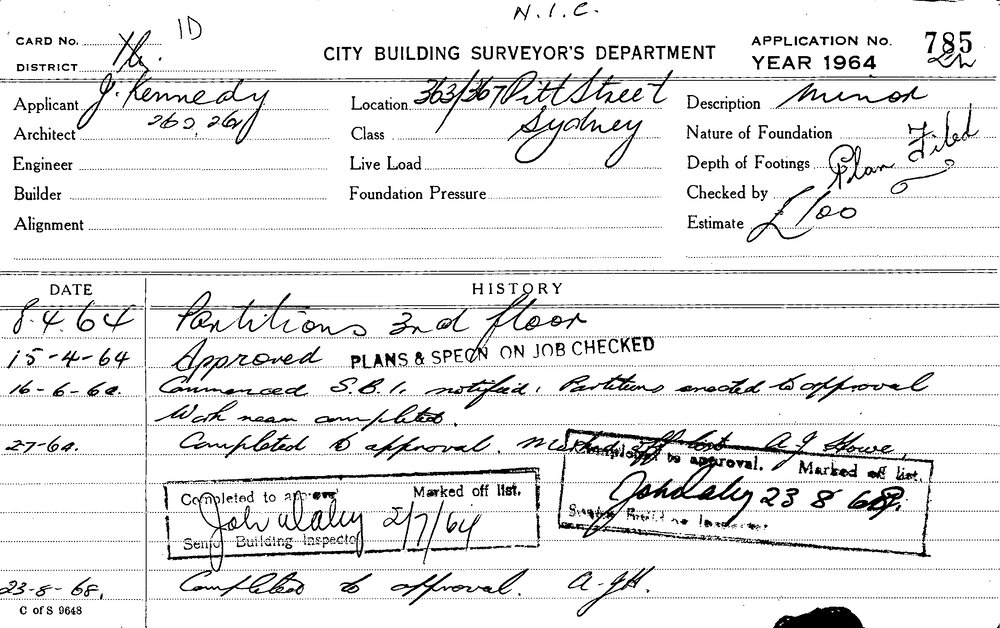 N.I.C.
CARD No. 1D
DISTRICT
CITY BUILDING SURVEYOR'S DEPARTMENT
APPLICATION No. 785
YEAR 1964
Applicant J. Kennedy
262, 264
Location 363/367 Pitt Street
Sydney
Description Minor
Architect
Class
Nature of Foundation
Engineer
Live Load
Depth of Footings Plan Filed
Builder
Foundation Pressure
Checked by
Alignment
Estimate £100
DATE HISTORY
8.4.64 Partitions 3rd floor
15-4-64 Approved PLANS & SPECN ON JOB CHECKED
16-6-64. Commenced S.B.I. notified. Partitions erected to approval
Work near completed.
2-7-64. Completed to approval. Marked off list A J Howe.
Completed to approval. Marked off list.
John Daley 2/7/64
Senior Building Inspector
Completed to approval. Marked off list.
John Daley 23 8 68
Senior Building Inspector
23-8-68. Completed to approval. A-JH.
C of S 9648